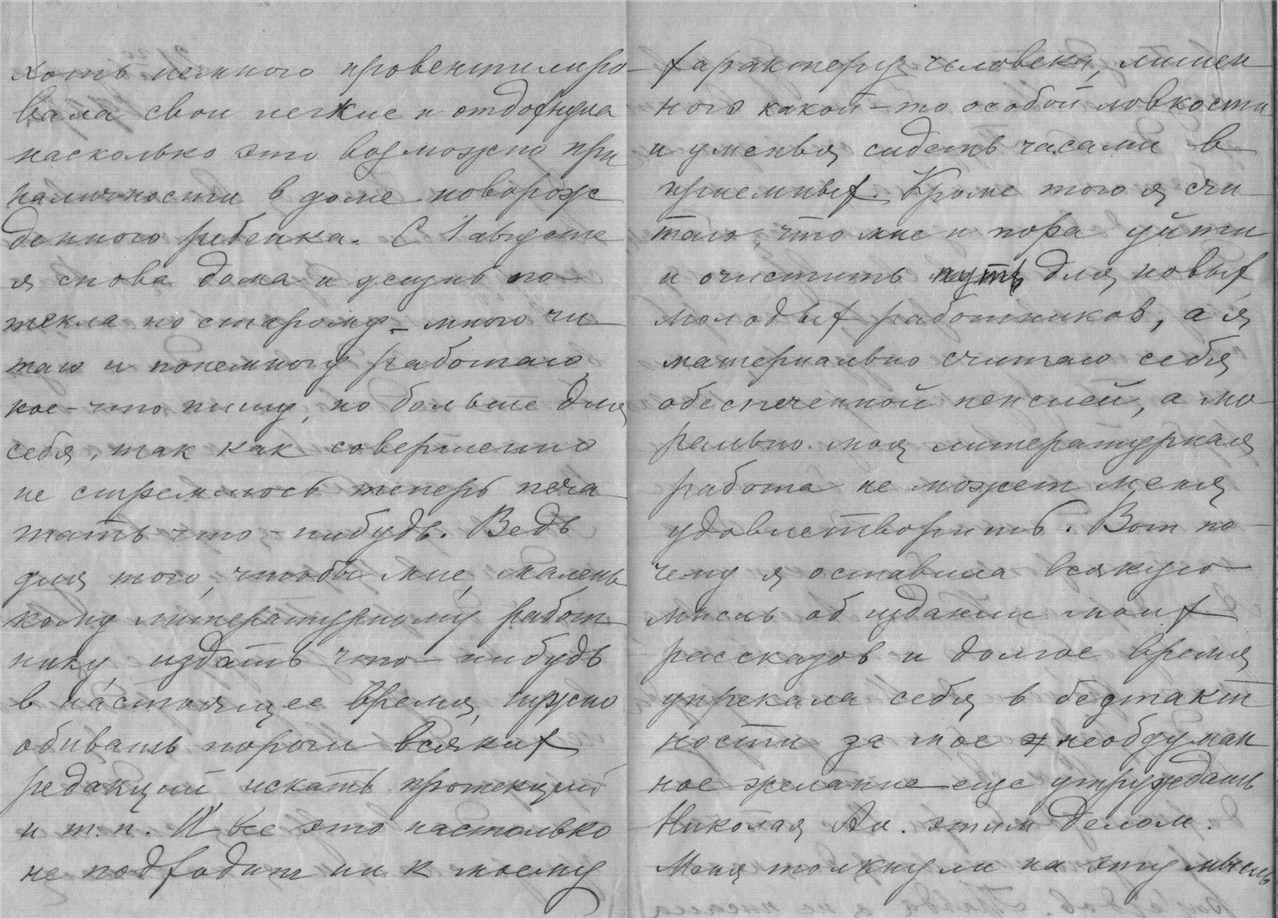 хоть немного провентилиро-
вала свои легкие и отдохнула
насколько это возможно при
наличности в доме новорож
денного ребенка. С 1 августа
я снова дома и жизнь по-
текла по старому – много чи
таю и понемногу работаю,
кое-что пишу, но больше для
себя, так как совершенно
не стремлюсь теперь печа
тать что-нибудь. Ведь
для того, чтобы мне, малень
кому литературному работ
нику, издать что-нибудь
в настоящее время, нужно
обивать пороги всяких
редакций искать протекций
и т.п. И все это настолько
не подходит ни к моему
характеру человека, лишен
ного какой-то особой ловкости
и уменья сидеть часами в
приемных. Кроме того я счи
таю, что мне и пора уйти
и очистить путь для новых
молодых работников, а я
материально считаю себя
обеспеченной пенсией, а мо
рально моя литературная
работа не может меня
удовлетворить. Вот по-
чему я оставила всякую
мысль об издании моих
рассказов и долгое время
упрекала себя в бестакт
ности за мое необдуман
ное желание еще утруждать
Николая Ал. этим делом.
Меня толкнули на эту мысль